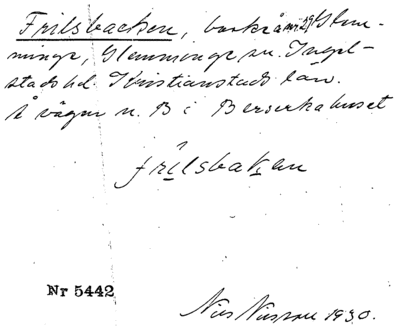 Frilsbacken, backe å nr. 29 Glem-
minge, Glemminge sn. Ingel-
stads hd. Kristianstads län.
å vägen n. B i Berserkahuset
frilsbakan
Nr 5442
Nils Nilsson 1930.